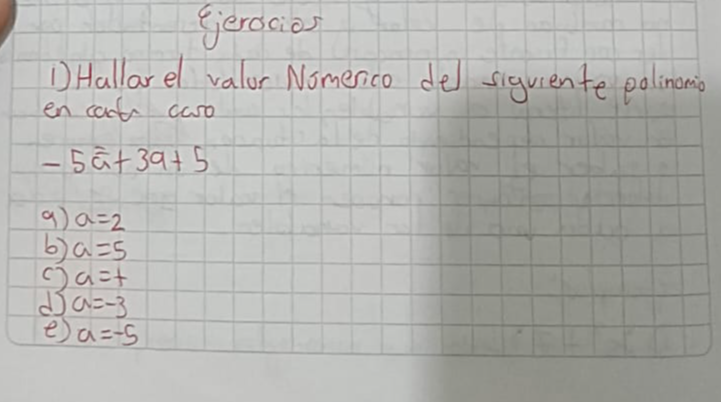 Ejercicios
1) Hallar el valor Númerico del siguiente polinomio
en cada caso
- 5a² + 3a + 5
a) a=2
b) a=5
c) a=t
d) a=-3
e) a=-5